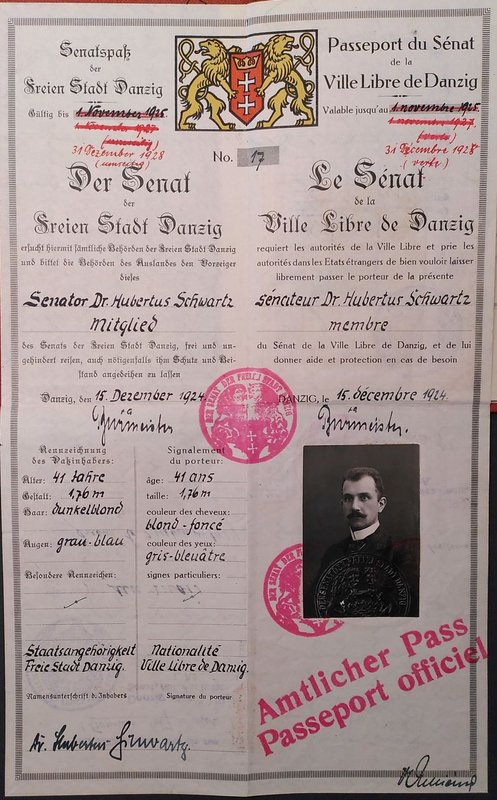 Senatspaß
der
Freien Stadt Danzig
Gültig bis 1. November 1925
(umseitig)
31 Dezember 1928
(umseitig)
Passeport du Sénat
de la
Ville Libre de Danzig
Valable jusqu'au 1. novembre 1925
1. novembre 1927.
(verte)
31 Décembre 1928
(verte)
No. 17
Der Senat
der
Freien Stadt Danzig
ersucht hiermit sämtliche Behörden der Freien Stadt Danzig
und bittet die Behörden des Auslandes den Vorzeiger
dieses
Senator Dr. Hubertus Schwartz
Mitglied
des Senats der Freien Stadt Danzig, frei und un-
gehindert reisen, auch nötigenfalls ihm Schutz und Bei-
stand angedeihen zu lassen
Danzig, den 15. Dezember 1924.
Le Sénat
de la
Ville Libre de Danzig
requiert les autorités de la Ville Libre et prie les
autorités dans les Etats étrangers de bien vouloir laisser
librement passer le porteur de la présente
sénateur Dr. Hubertus Schwartz
membre
du Sénat de la Ville Libre de Danzig, et de lui
donner aide et protection en cas de besoin
DANZIG, le 15. décembre 1924.
DER SENAT DER FREIEN STADT DANZIG
Kennzeichnung
des Paßinhabers:
Alter: 41 Jahre
Gestalt: 1,76 m
Haar: dunkelblond
Augen: grau-blau
Besondere Kennzeichen:
Staatsangehörigkeit
Freie Stadt Danzig.
Namensunterschrift d. Inhabers
Signalement
du porteur:
âge: 41 ans
taille: 1,76 m
couleur des cheveux:
blond-foncé
couleur des yeux:
gris-bleuâtre
signes particuliers:
Nationalité
Ville Libre de Danzig.
Signature du porteur
Dr. Hubertus Schwartz.
Amtlicher Pass
Passeport officiel